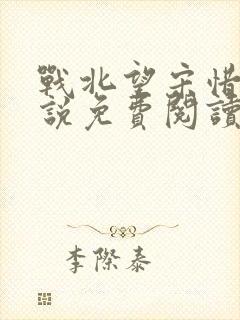 戰北望宋惜
說免費閱讀
李際泰